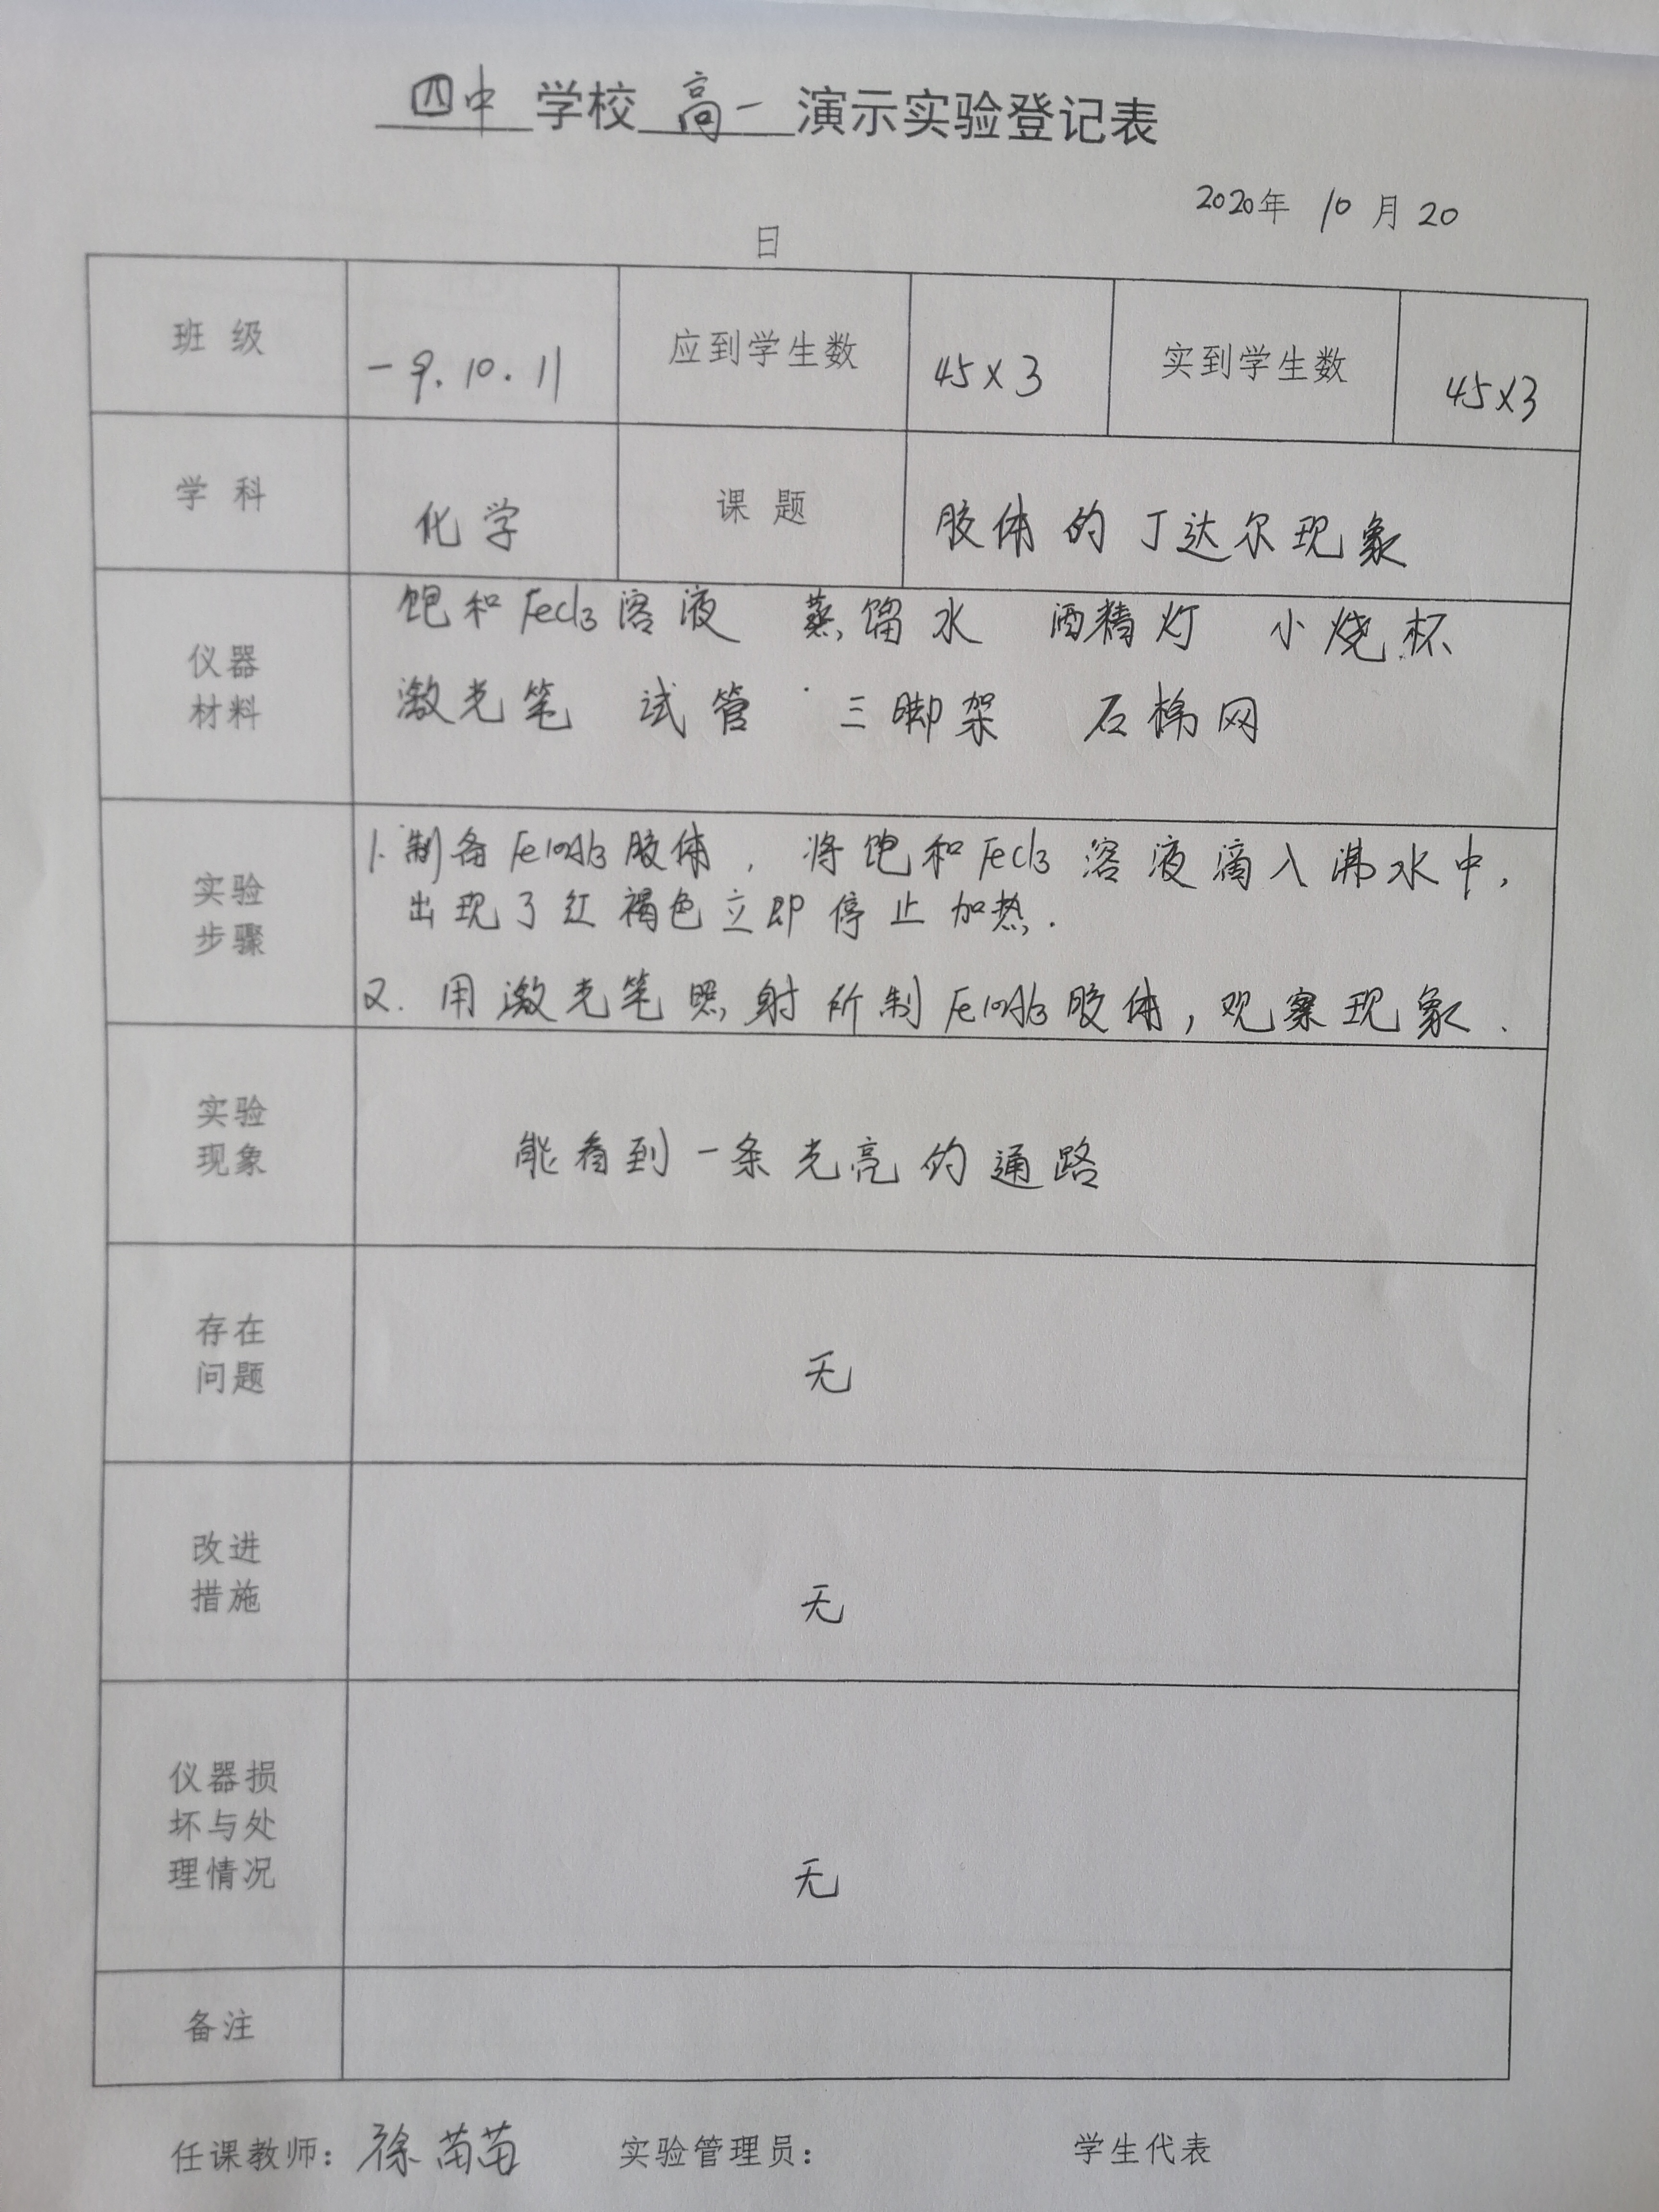 四中 学校 高一 演示实验登记表
2020年 10 月 20
日
班 级 一9.10.11 应到学生数 45×3 实到学生数 45×3
学 科 化学 课 题 胶体的丁达尔现象
仪器
材料
饱和FeCl3溶液 蒸馏水 酒精灯 小烧杯
激光笔 试管 三脚架 石棉网
实验
步骤
1.制备Fe(OH)3胶体,将饱和FeCl3溶液滴入沸水中,
出现了红褐色立即停止加热.
2.用激光笔照射所制Fe(OH)3胶体,观察现象.
实验
现象
能看到一条光亮的通路
存在
问题
无
改进
措施
无
仪器损
坏与处
理情况
无
备注
任课教师:徐苗苗 实验管理员: 学生代表